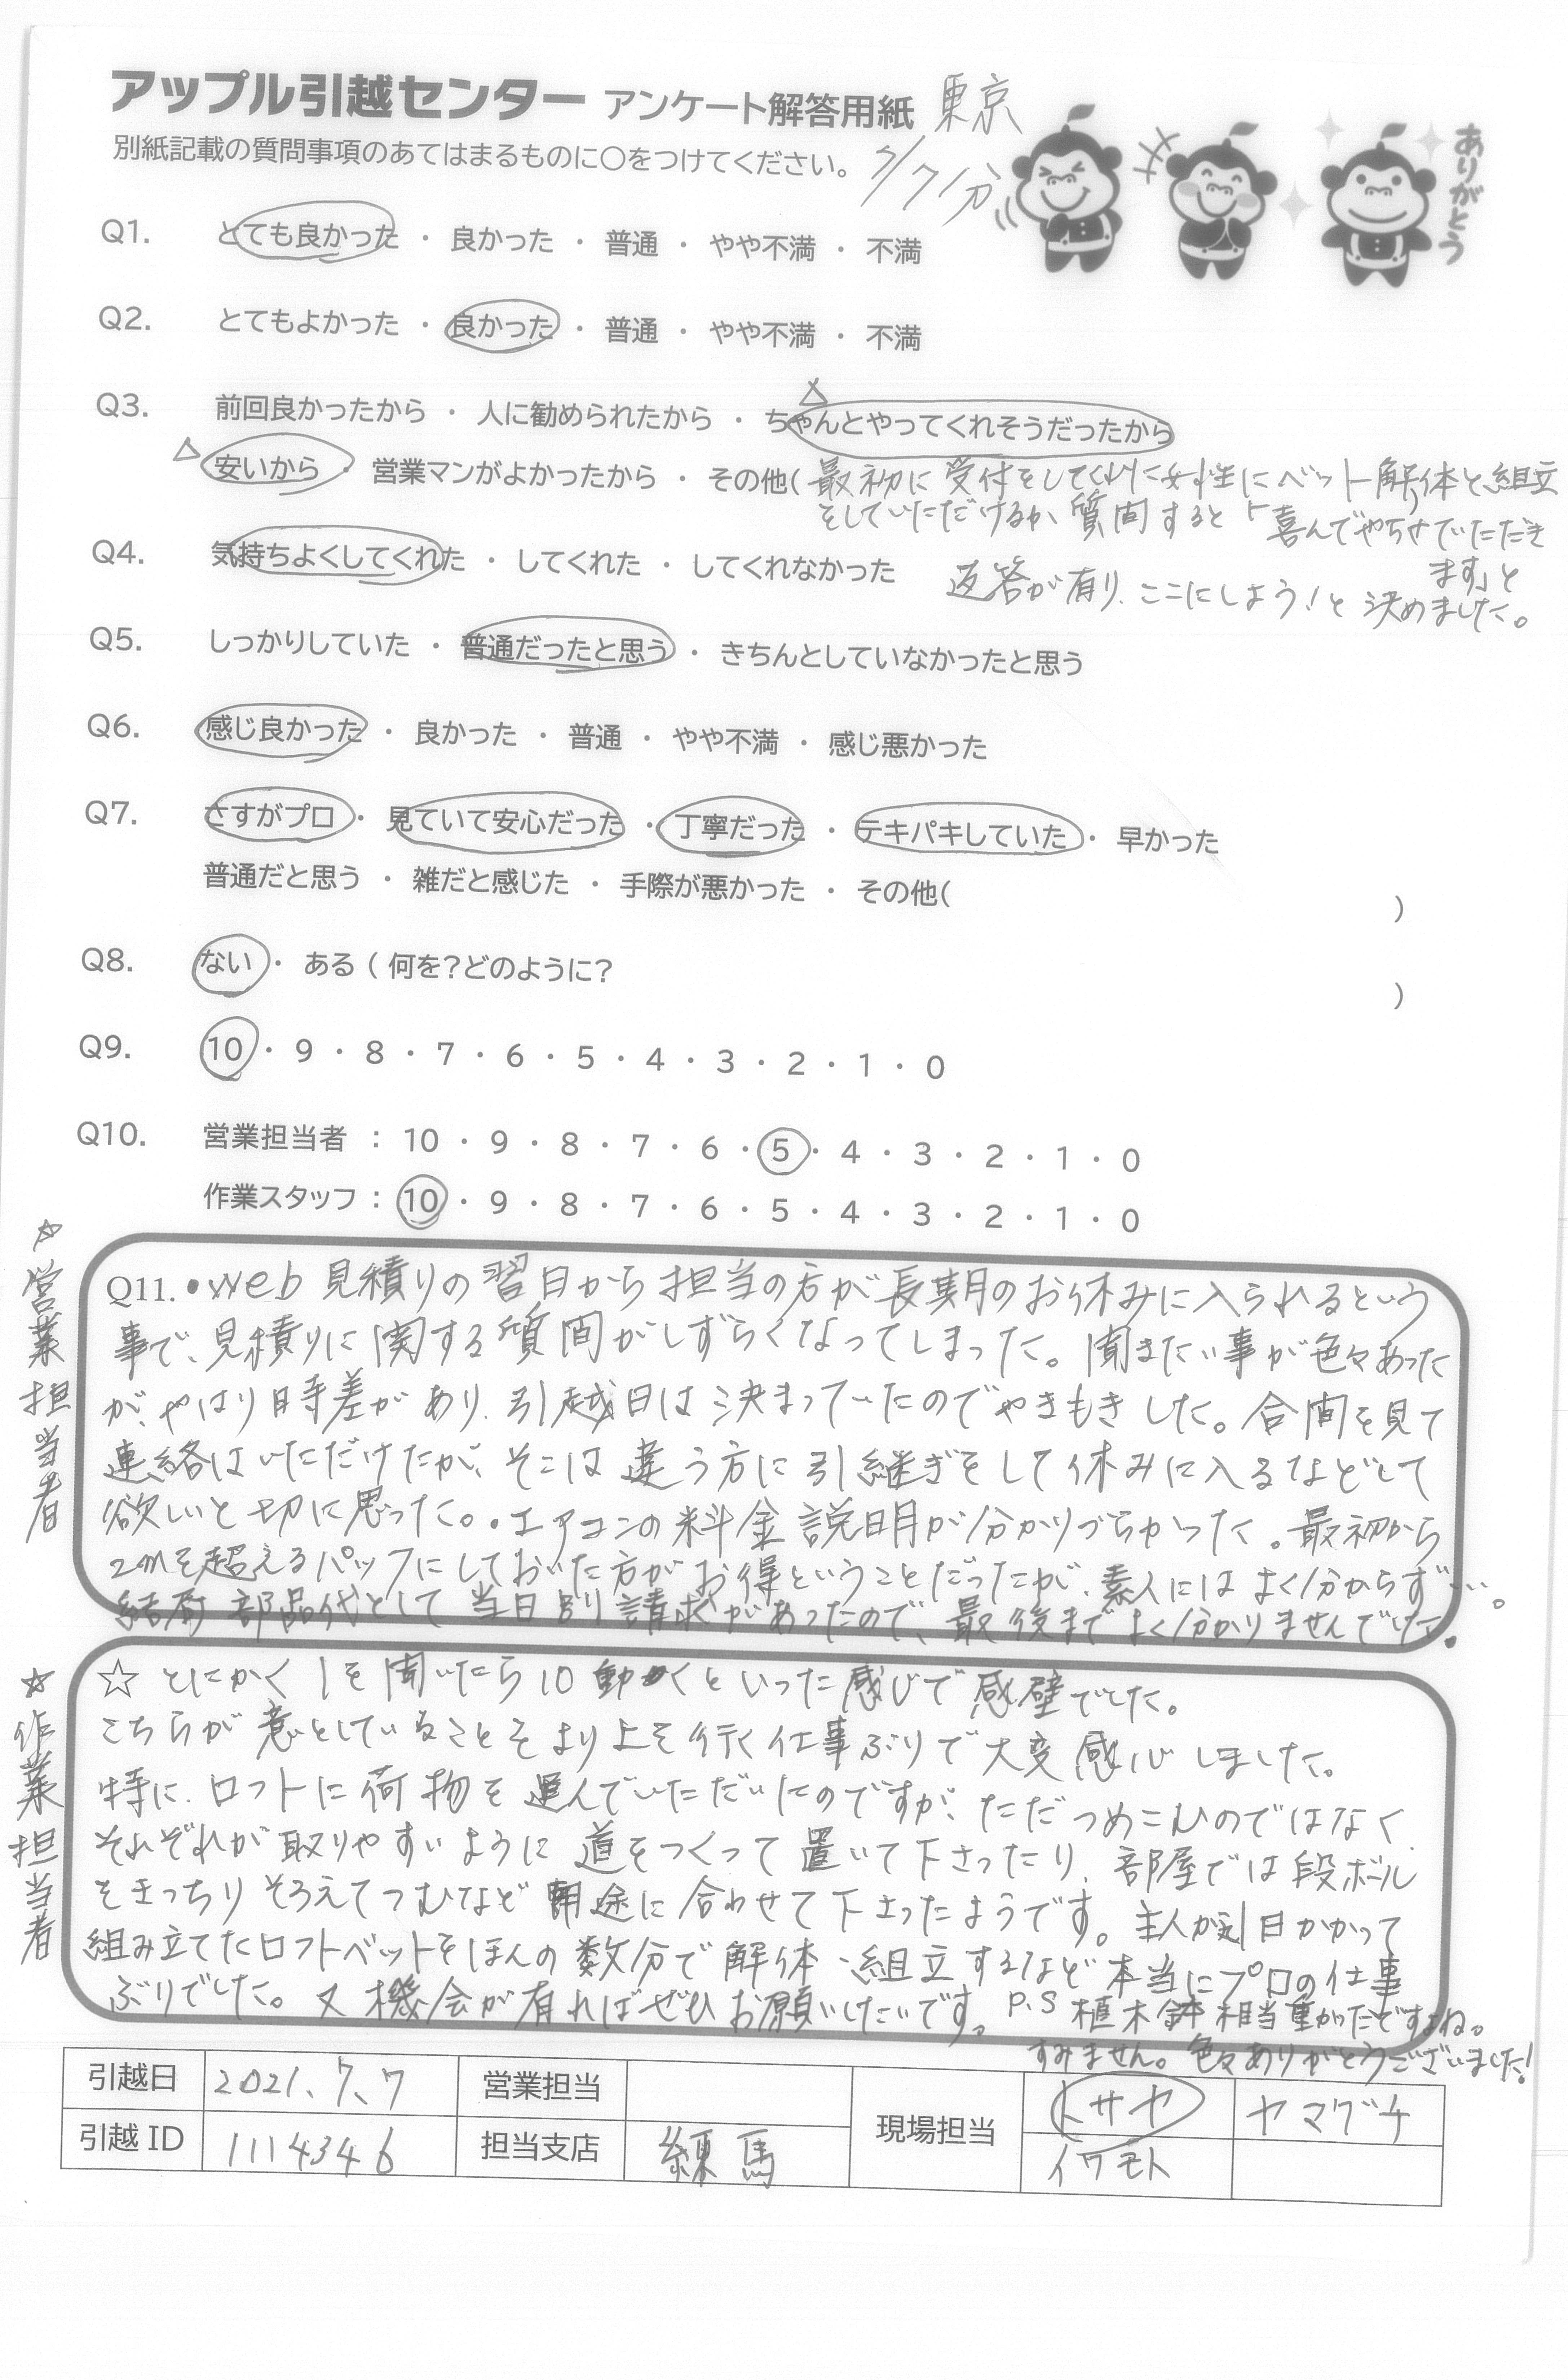 アップル引越センター アンケート解答用紙 東京
別紙記載の質問事項のあてはまるものに○をつけてください。 7/7分
ありがとう
Q1. とても良かった ・ 良かった ・ 普通 ・ やや不満 ・ 不満
Q2. とてもよかった ・ 良かった ・ 普通 ・ やや不満 ・ 不満
Q3. 前回良かったから ・ 人に勧められたから ・ ちゃんとやってくれそうだったから
安いから ・ 営業マンがよかったから ・ その他( 最初に受付をしてくれた女性にベット解体と組立
をしていただけるか質問すると「喜んでやらせていただき
ます」と
Q4. 気持ちよくしてくれた ・ してくれた ・ してくれなかった
返答が有り、ここにしよう!と決めました。
Q5. しっかりしていた ・ 普通だったと思う ・ きちんとしていなかったと思う
Q6. 感じ良かった ・ 良かった ・ 普通 ・ やや不満 ・ 感じ悪かった
Q7. さすがプロ ・ 見ていて安心だった ・ 丁寧だった ・ テキパキしていた ・ 早かった
普通だと思う ・ 雑だと感じた ・ 手際が悪かった ・ その他( )
Q8. ない ・ ある ( 何を?どのように? )
Q9. 10 ・ 9 ・ 8 ・ 7 ・ 6 ・ 5 ・ 4 ・ 3 ・ 2 ・ 1 ・ 0
Q10. 営業担当者 : 10 ・ 9 ・ 8 ・ 7 ・ 6 ・ 5 ・ 4 ・ 3 ・ 2 ・ 1 ・ 0
作業スタッフ : 10 ・ 9 ・ 8 ・ 7 ・ 6 ・ 5 ・ 4 ・ 3 ・ 2 ・ 1 ・ 0
☆営業担当者
Q11. ・web見積りの翌日から担当の方が長期のお休みに入られるという
事で、見積りに関する質問がしずらくなってしまった。聞きたい事が色々あった
が、やはり時差があり、引越日は決まっていたのでやきもきした。合間を見て
連絡はいただけたが、そこは違う方に引継ぎをして休みに入るなどして
欲しいと切に思った。・エアコンの料金説明が分かりづらかった。最初から
2mを超えるパックにしておいた方がお得ということだったが、素人にはよく分からず…。
結局部品代として当日別請求があったので、最後までよく分かりませんでした。
☆作業担当者
☆ とにかく1を聞いたら10動くといった感じで感壁でした。
こちらが意としていることをより上を行く仕事ぶりで大変感心しました。
特に、ロフトに荷物を運んでいただいたのですが、ただつめこむのではなく、
それぞれが取りやすいように道をつくって置いて下さったり、部屋では段ボール
をきっちりそろえてつむなど用途に合わせて下さったようです。主人が1日かかって
組み立てたロフトベットをほんの数分で解体・組立するなど本当にプロの仕事
ぶりでした。又機会が有ればぜひお願いしたいです。P.S 植木鉢相当重かったですよね。
すみません。色々ありがとうございました!
引越日 2021.7.7 営業担当 現場担当 トサヤ ヤマグチ
引越ID 1114346 担当支店 練馬 イワモト